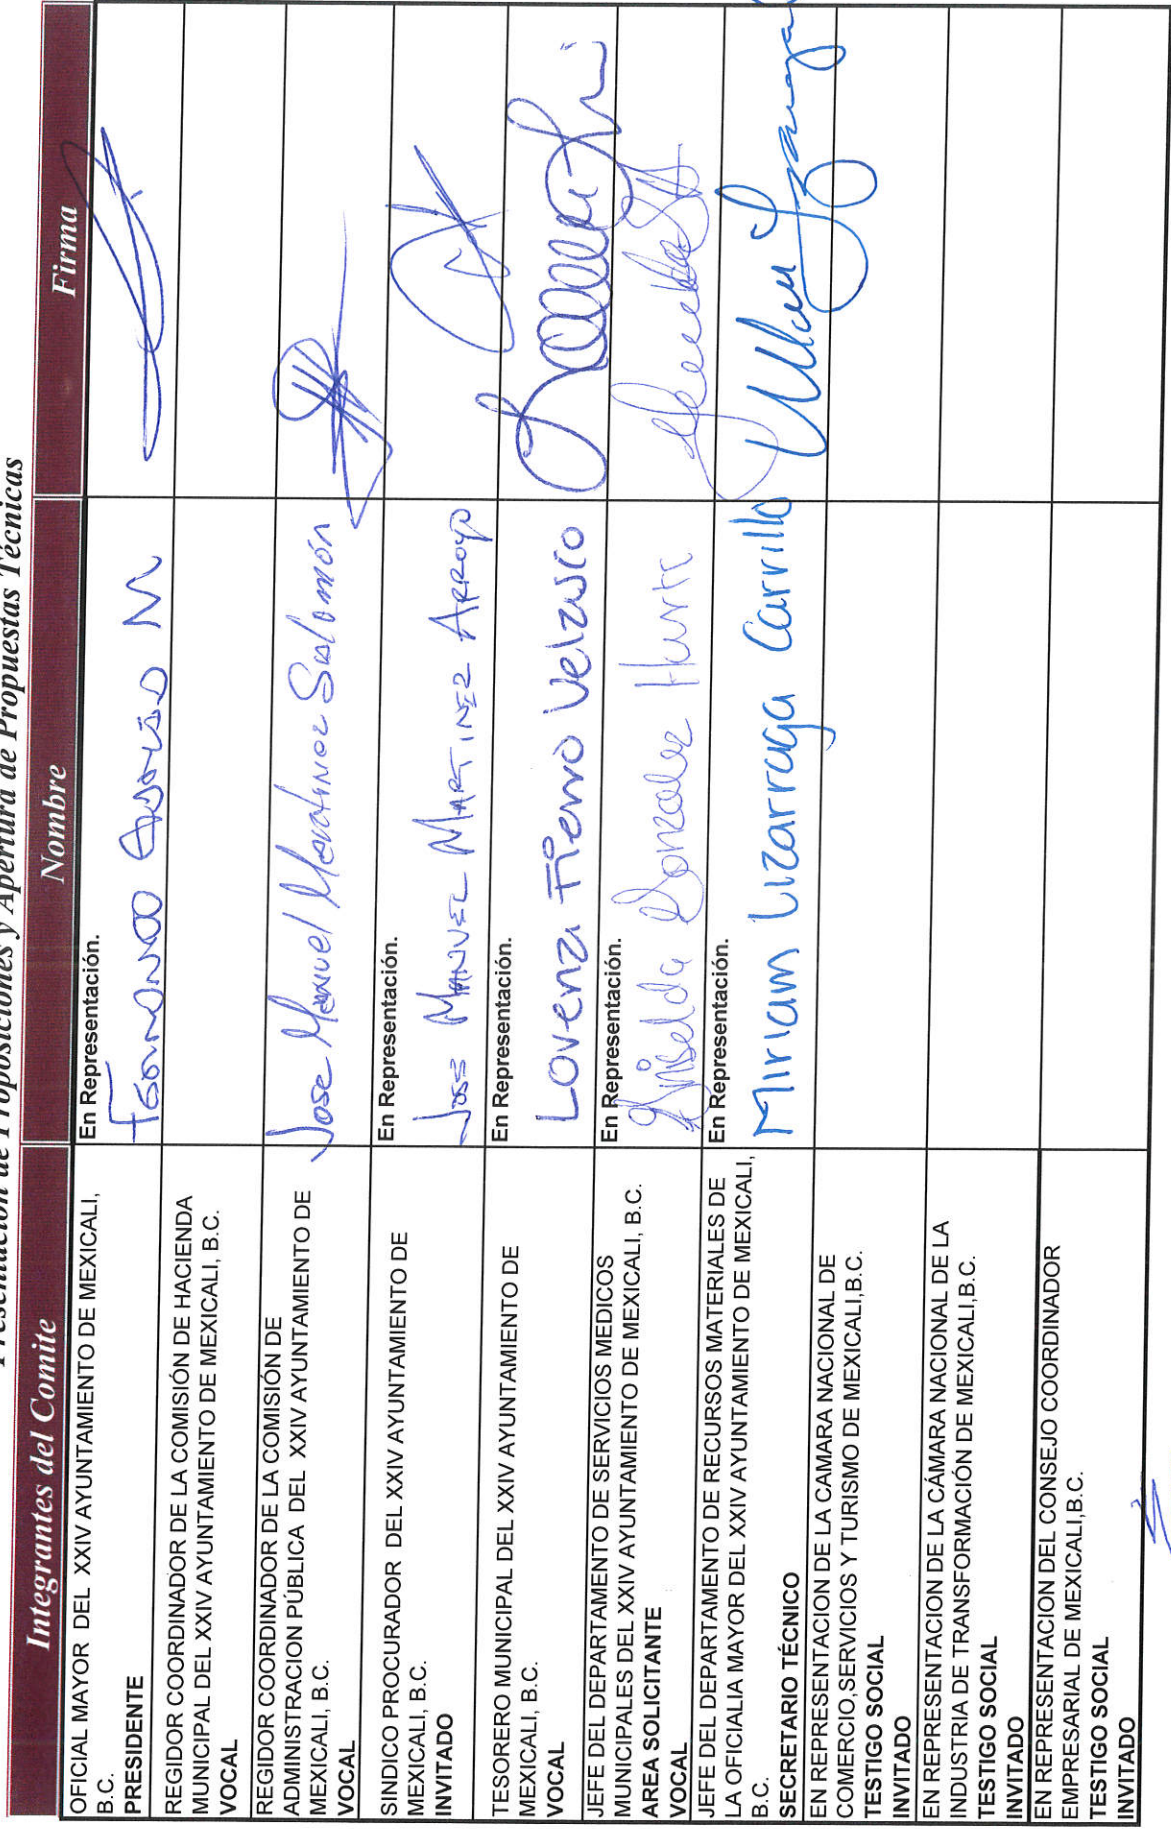 Presentación de Proposiciones y Apertura de Propuestas Técnicas
Integrantes del Comite Nombre Firma
OFICIAL MAYOR DEL XXIV AYUNTAMIENTO DE MEXICALI,
B.C.
PRESIDENTE
En Representación.
REGIDOR COORDINADOR DE LA COMISIÓN DE HACIENDA
MUNICIPAL DEL XXIV AYUNTAMIENTO DE MEXICALI, B.C.
VOCAL
REGIDOR COORDINADOR DE LA COMISIÓN DE
ADMINISTRACION PÚBLICA DEL XXIV AYUNTAMIENTO DE
MEXICALI, B.C.
VOCAL
Jose Manuel Martinez Salomón
SINDICO PROCURADOR DEL XXIV AYUNTAMIENTO DE
MEXICALI, B.C.
INVITADO
En Representación.
José MANUEL MARTINEZ ARROYO
TESORERO MUNICIPAL DEL XXIV AYUNTAMIENTO DE
MEXICALI, B.C.
VOCAL
En Representación.
Lorenza Fierro Velazco
JEFE DEL DEPARTAMENTO DE SERVICIOS MEDICOS
MUNICIPALES DEL XXIV AYUNTAMIENTO DE MEXICALI, B.C.
AREA SOLICITANTE
VOCAL
En Representación.
Griselda Gonzalez
JEFE DEL DEPARTAMENTO DE RECURSOS MATERIALES DE
LA OFICIALIA MAYOR DEL XXIV AYUNTAMIENTO DE MEXICALI,
B.C.
SECRETARIO TÉCNICO
En Representación.
Miriam Lizarraga Carrillo
EN REPRESENTACION DE LA CAMARA NACIONAL DE
COMERCIO,SERVICIOS Y TURISMO DE MEXICALI,B.C.
TESTIGO SOCIAL
INVITADO
EN REPRESENTACION DE LA CÁMARA NACIONAL DE LA
INDUSTRIA DE TRANSFORMACIÓN DE MEXICALI,B.C.
TESTIGO SOCIAL
INVITADO
EN REPRESENTACION DEL CONSEJO COORDINADOR
EMPRESARIAL DE MEXICALI,B.C.
TESTIGO SOCIAL
INVITADO